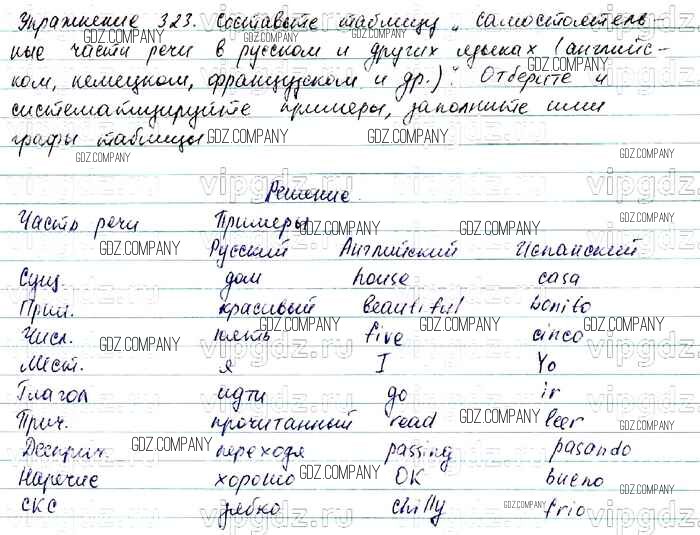 Упражнение 323. Составьте таблицу „Самостоятель-
ные части речи в русском и других языках (английс-
ком, немецком, французском и др.)“. Отберите и
систематизируйте примеры, заполните ими
графы таблицы
Решение.
Часть речи Примеры
Русский Английский Испанский
Сущ. дом house casa
Прил. красивый beautiful bonito
Числ. пять five cinco
Мест. я I Yo
Глагол идти go ir
Прич. прочитанный read leer
Дееприч. переходя passing pasando
Наречие хорошо OK bueno
СКС зябко chilly frio
GDZ.COMPANY
vipgdz.ru